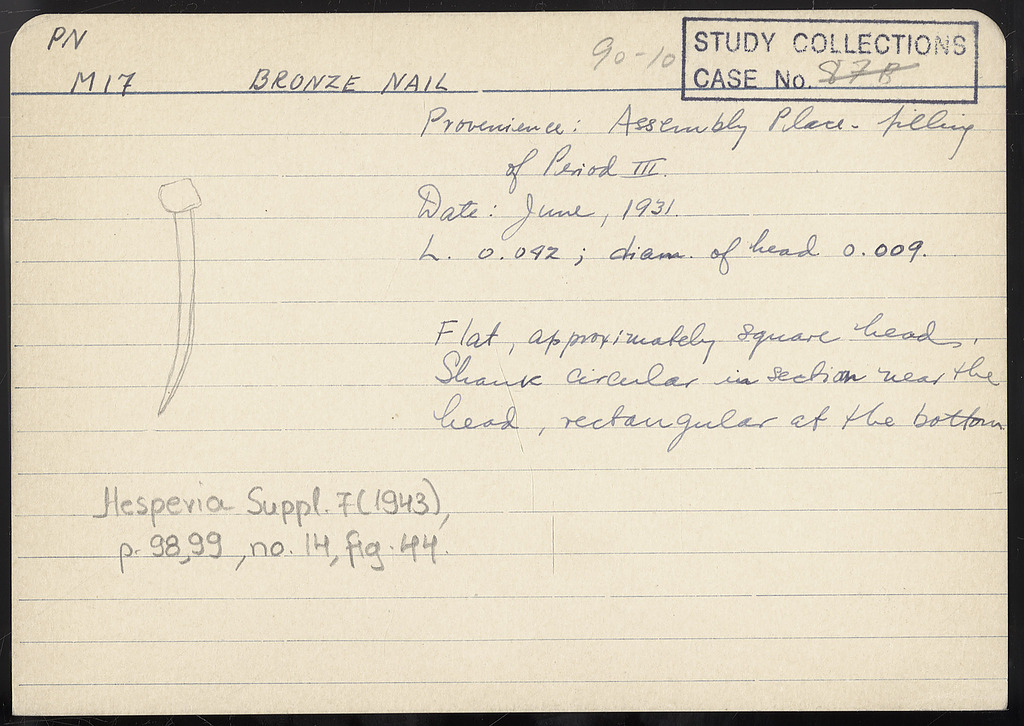 PN
M17 BRONZE NAIL
90-10
STUDY COLLECTIONS
CASE No. 87B
Provenience: Assembly Place - filling
of Period III.
Date: June, 1931.
L. 0.042 ; diam. of head 0.009.
Flat, approximately square head.
Shank circular in section near the
head, rectangular at the bottom
Hesperia Suppl. 7 (1943),
p. 98,99, no. 14, fig. 44.